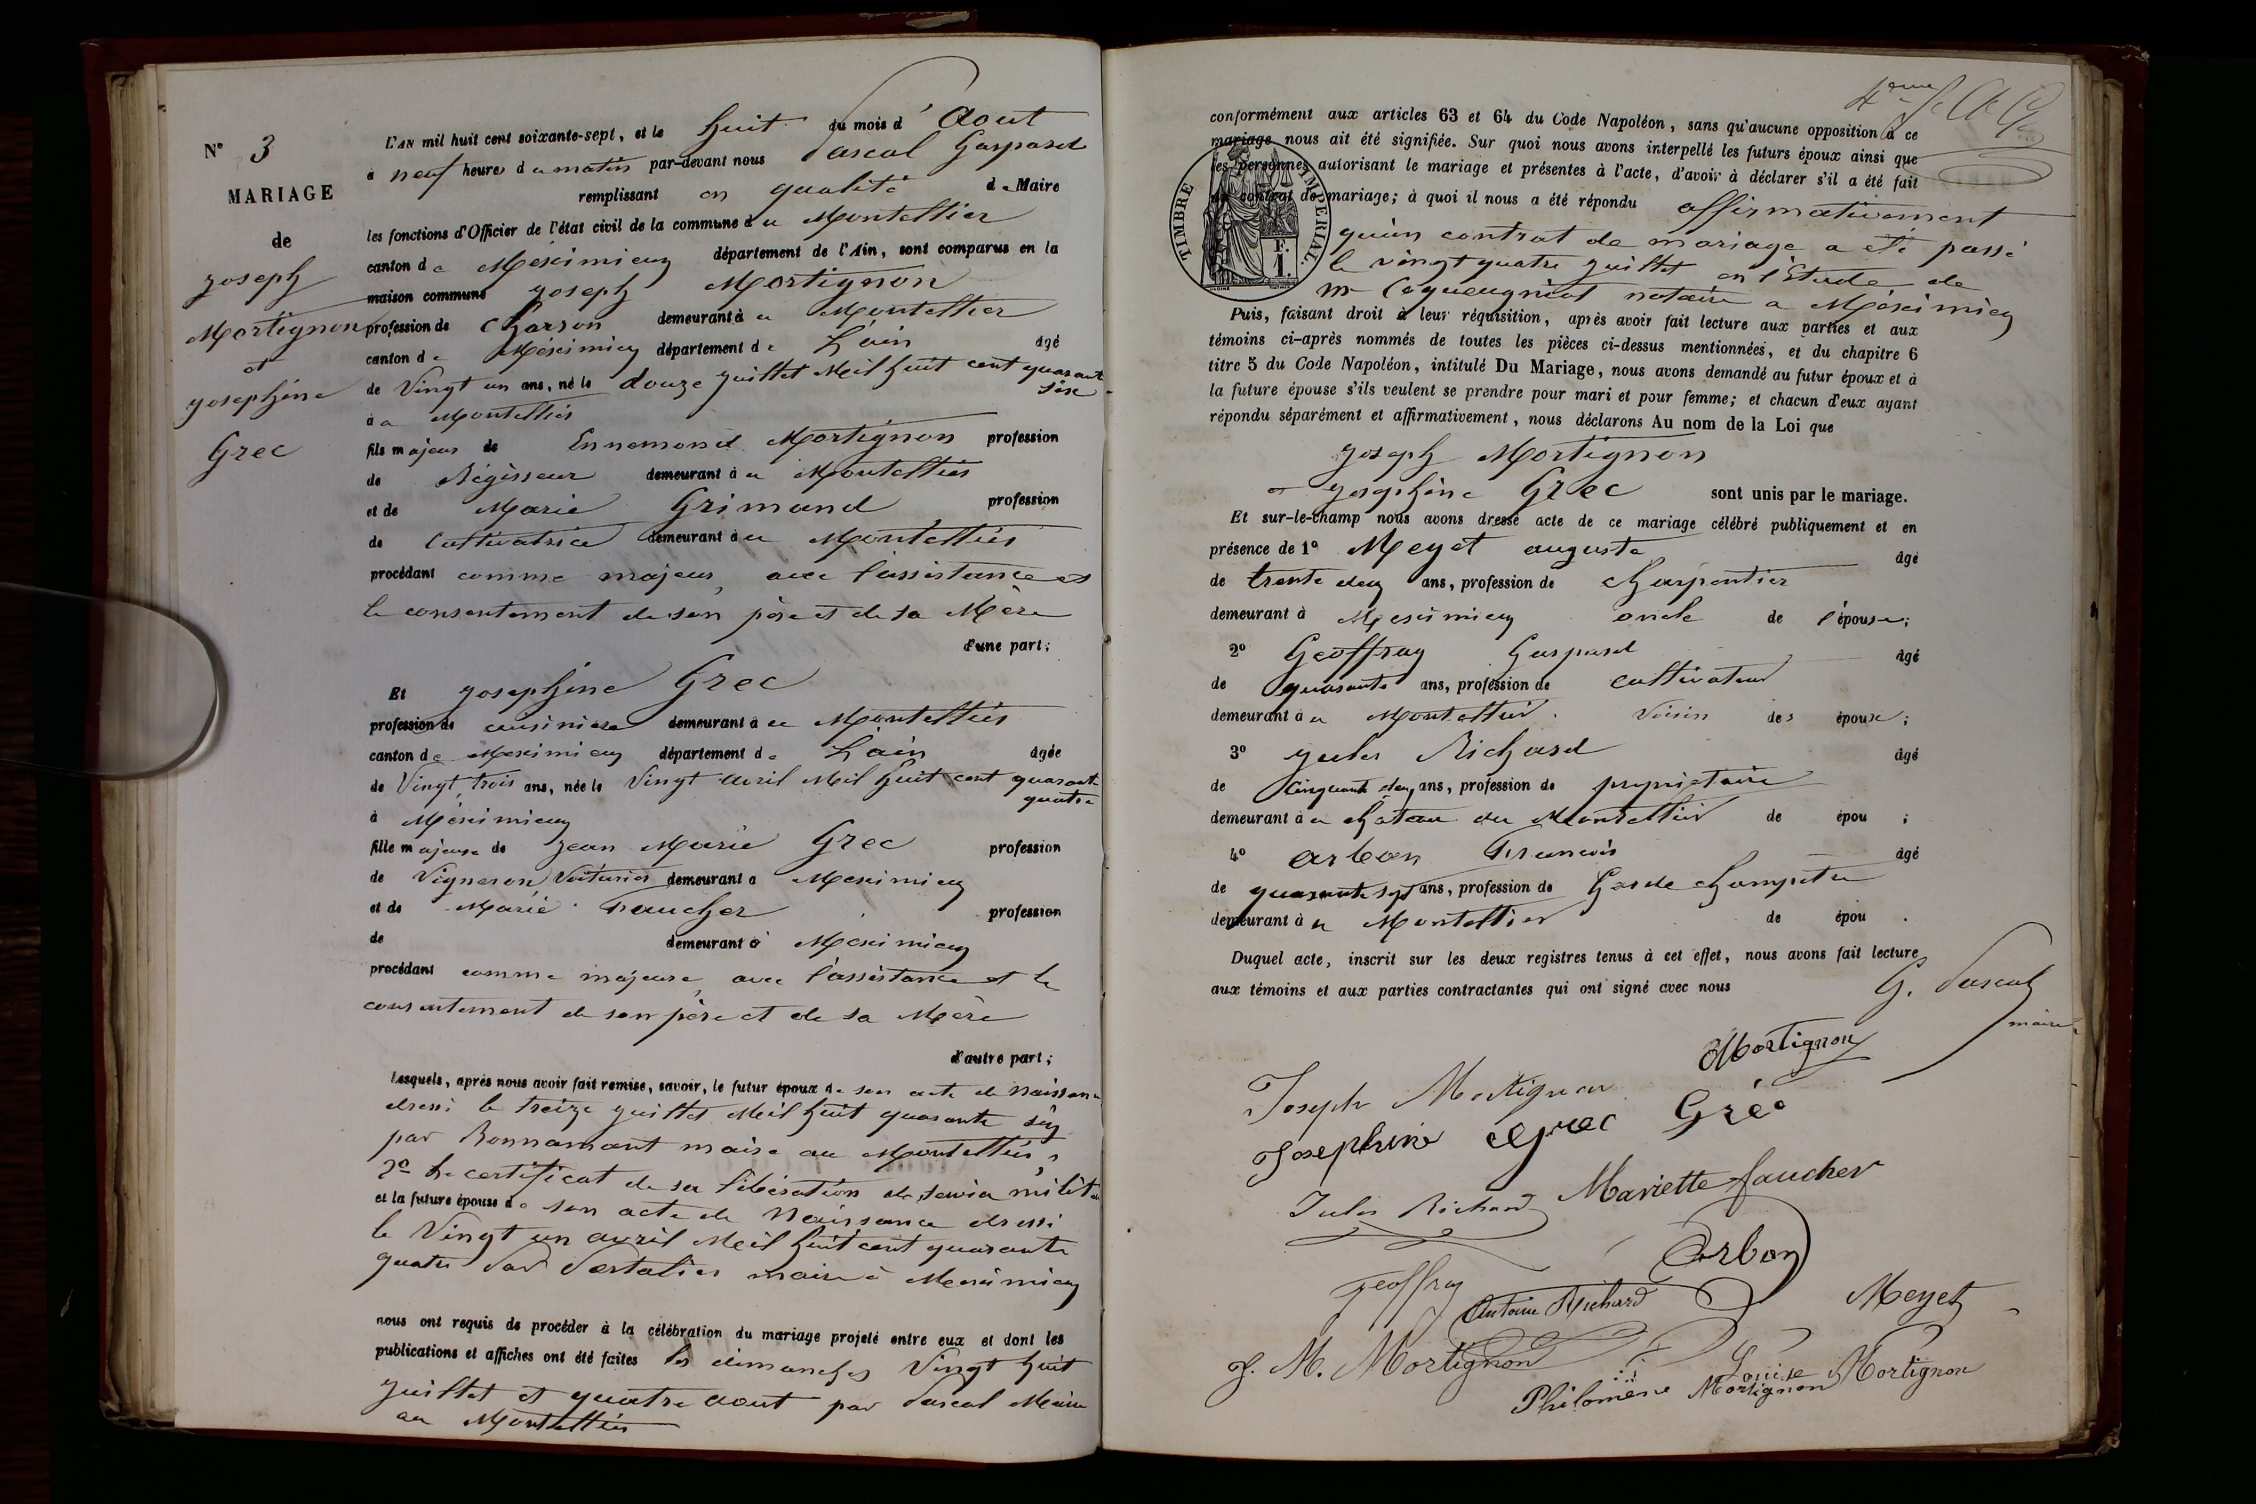 N° 3
MARIAGE
de
Joseph
Mortignon
et
Josephine
Grec
L'AN mil huit cent soixante-sept, et le huit du mois d'Aout
à neuf heures du matin par-devant nous Pascal Gaspard
remplissant en qualité de Maire
les fonctions d'Officier de l'état civil de la commune du Montellier
canton de Méximieux département de l'Ain, sont comparus en la
maison commune Joseph Mortignon
profession de Charron demeurant à au Montellier
canton de Méximieux département de L'ain âgé
de Vingt un ans, né le douze juillet Mil huit cent quarante
six
à au Montellier
fils majeur de Ennemond Mortignon profession
de Régisseur demeurant à au Montellier
et de Marie Grimand profession
de Cultivatrice demeurant à au Montellier
procédant comme majeur, avec l'assistance et
le consentement de son père et de sa Mère
d'une part;
Et Josephine Grec
profession de cuisiniere demeurant à au Montellier
canton de Meximieux département de L'ain âgée
de Vingt trois ans, née le Vingt avril Mil huit cent quarante
quatre
à Méximieux
fille majeure de Jean Marie Grec profession
de Vigneron Voiturier demeurant à Meximieux
et de Marie Faucher profession
de demeurant à Meximieux
procédant comme majeure, avec l'assistance et le
consentement de son père et de sa Mère
d'autre part;
Lesquels, après nous avoir fait remise, savoir, le futur époux de son acte de Naissance
dressé le treize juillet Mil huit quarante six
par Bonnamant maire au Montellier,
2° Le certificat de sa libération de servia milit
et la future épouse de son acte de Naissance dressé
le Vingt un avril Mil huit cent quarante
quatre par Portalier maire à Meximieux
nous ont requis de procéder à la célébration du mariage projeté entre eux et dont les
publications et affiches ont été faites les dimanches Vingt huit
juillet et quatre aout par Pascal Maire
au Montellier
4eme
conformément aux articles 63 et 64 du Code Napoléon, sans qu'aucune opposition à ce
mariage nous ait été signifiée. Sur quoi nous avons interpellé les futurs époux ainsi que
les personnes autorisant le mariage et présentes à l'acte, d'avoir à déclarer s'il a été fait
un contrat de mariage; à quoi il nous a été répondu affirmativement
TIMBRE IMPERIAL.
F.
1.
qu'un contrat de mariage a été passé
le vingt quatre juillet en l'Etude de
me Coqueugniot notaire a Méximieux
Puis, faisant droit à leur réquisition, après avoir fait lecture aux parties et aux
témoins ci-après nommés de toutes les pièces ci-dessus mentionnées, et du chapitre 6
titre 5 du Code Napoléon, intitulé Du Mariage, nous avons demandé au futur époux et à
la future épouse s'ils veulent se prendre pour mari et pour femme; et chacun d'eux ayant
répondu séparément et affirmativement, nous déclarons Au nom de la Loi que
Joseph Mortignon
et Josephine Grec sont unis par le mariage.
Et sur-le-champ nous avons dressé acte de ce mariage célébré publiquement et en
présence de 1° Meyet auguste âgé
de trente deux ans, profession de charpentier
demeurant à Meximieux oncle de l'épouse;
2° Geoffray Gaspard âgé
de quarante ans, profession de cultivateur
demeurant à au Montellier. Voisin des époux;
3° Jules Richard âgé
de Cinquante deux ans, profession de propriétaire
demeurant à au château du Montellier de épou ;
4° Arban François âgé
de quarante sept ans, profession de Garde champetre
demeurant à au Montellier de épou .
Duquel acte, inscrit sur les deux registres tenus à cet effet, nous avons fait lecture
aux témoins et aux parties contractantes qui ont signé avec nous
G. Pascal
maire
Mortignon
Joseph Mortignon
Josephine grec Gréc
Jules Richard Mariette faucher
Arban
geoffray
Antoine Richard Meyet
J. M. Mortignon
Louise Mortignon
Philomène Mortignon